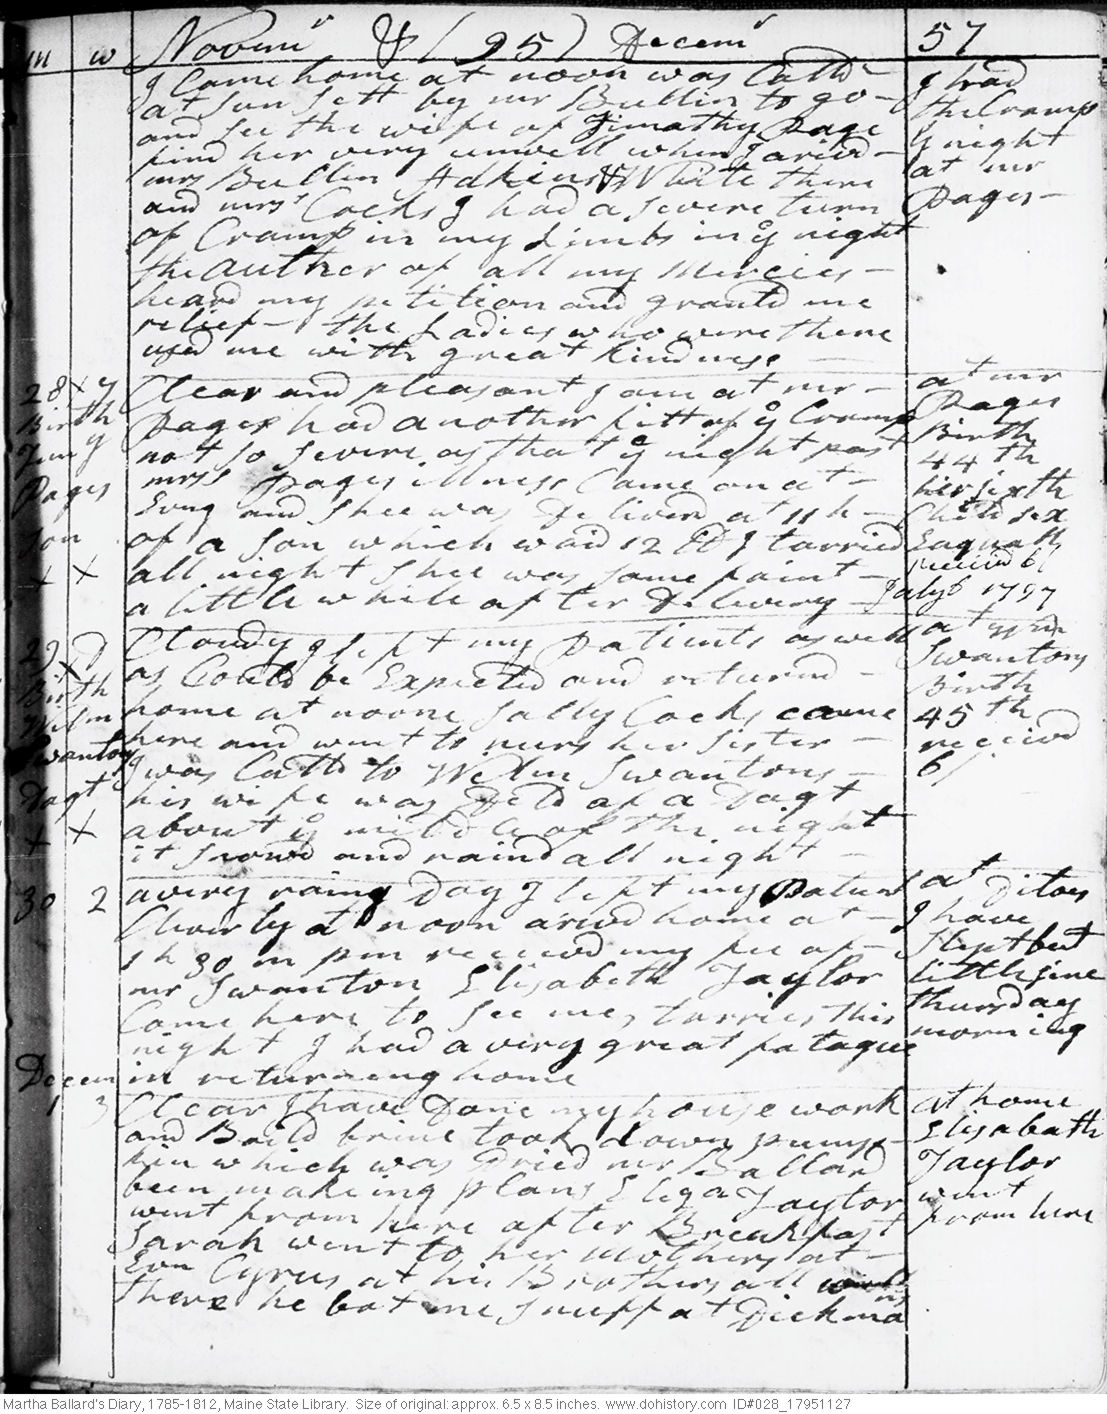 m w Novem & [95] Decem 57
I Came home at noon was Calld
at sun sett by mr Bullin to go
and see the wife of Timathy Page
find her very unwell when I arivd
mrs Bullin Adkins & White there
and mrs Cocks I had a severe turn
of Cramp in my Limbs in ye night
the author of all my Mercies
heard my petition and grantd me
relief the Ladies who were there
used me with great kindness
I had
the Cramp
ye night
at mr
Pages
28 x 7
Birth
Timy
Pages
son
x x
Clear and pleasant I am at mr
Pages had another fitt of ye Cramp
not so severe as that ye night past
mrss Pages illness Came on at
Evng and shee was Deliverd at 11 h
of a son which waid 12 lb I tarried
all night shee was some faint
a little while after Delivery
at mr
Pages
Birth
44th
her sixth
Child sex
Eaqual
receivd 6/
July 6 1797
29 D
x
Birth
Welm
Swantons
Dagt
x x
Cloudy I left my patients as well
as Could be Expected and returnd
home at noone Sally Cocks came
here and went to nurs her sister
I was Calld to Welm Swantons
his wife was Deld of a Dagt
about ye middle of the night
it snowd and raind all night
at Wm
Swantons
Birth
45th
receivd
6/
30 2
a very rainy Day I left my patient
Cleverly at noon arivd home at
1 h 30 m pm receivd my fee of
mr Swanton Elisabeth Taylor
Came here to see me, tarries this
night I had a very great fatague
in returning home
at Ditoes
I have
slept but
little sinc
thursday
morning
Decem
1 3
Clear I have Done my house work
and Boild brine took down pump-
kin which was Dried mr Ballard
been making plans Eliza Taylor
went from here after Breakfast
Sarah went to her mothers at
Evn Cyrus at his Brothers all
there he bot me snuff at Dickmans
at home
Elisabath
Taylor
went
from here
Martha Ballard's Diary, 1785-1812, Maine State Library. Size of original: approx. 6.5 x 8.5 inches. www.dohistory.com ID#028_17951127